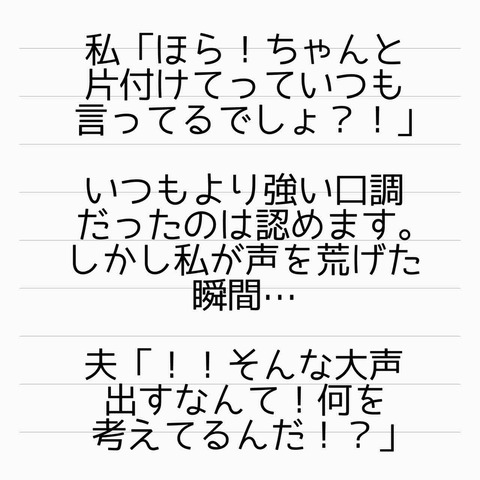 私「ほら！ちゃんと
片付けてっていつも
言ってるでしょ？！」
いつもより強い口調
だったのは認めます。
しかし私が声を荒げた
瞬間…
夫「！！そんな大声
出すなんて！何を
考えてるんだ！？」